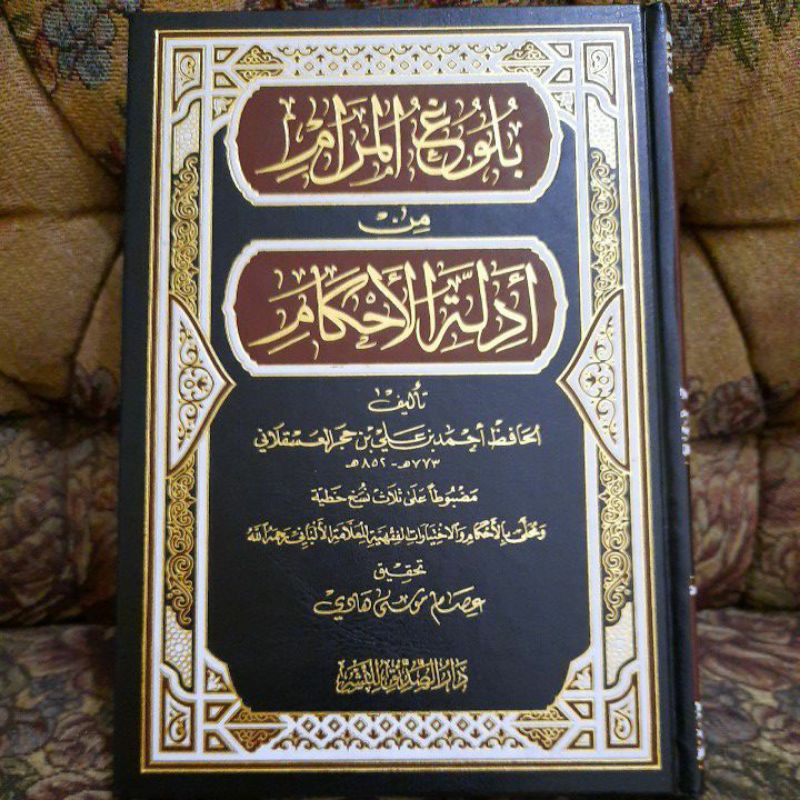 بُلُوغُ المَرَامِ
مِنْ
أَدِلَّةِ الأَحْكَامِ
تأليف
الحَافِظ أحْمَد بن عَلي بْن حَجَر العَسْقَلَاني
٧٧٣هـ - ٨٥٢هـ
مَضْبُوطاً عَلى ثَلَاث نُسَخ خَطّية
وَمُحَلّى بِالأَحْكَامِ وَالاخْتِيَارَاتِ الفِقْهِيَّةِ لِلعَلَّامَة الأَلْبَانِي رَحِمَهُ اللَّه
تحقيق
عِصَام مُوسَى هَادِي
دَارُ الصِّدِّيقِ لِلنَّشْر